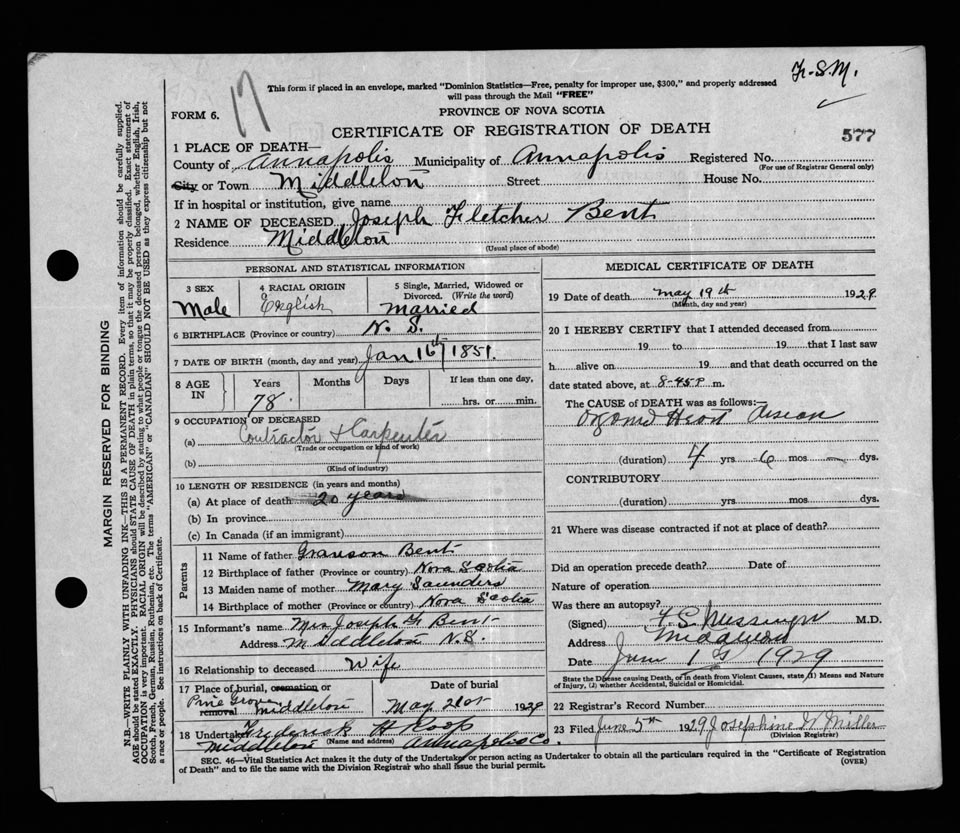 F.S.M.
17
This form if placed in an envelope, marked "Dominion Statistics—Free, penalty for improper use, $300," and properly addressed
will pass through the Mail "FREE"
FORM 6.
PROVINCE OF NOVA SCOTIA
CERTIFICATE OF REGISTRATION OF DEATH
577
1 PLACE OF DEATH—
County of Annapolis Municipality of Annapolis Registered No.
(For use of Registrar General only)
City or Town Middleton Street House No.
If in hospital or institution, give name
2 NAME OF DECEASED Joseph Fletcher Bent
Residence Middleton
(Usual place of abode)
PERSONAL AND STATISTICAL INFORMATION
3 SEX 4 RACIAL ORIGIN 5 Single, Married, Widowed or
Divorced. (Write the word)
Male English Married
6 BIRTHPLACE (Province or country) N. S.
7 DATE OF BIRTH (month, day and year) Jan 16th 1851.
8 AGE IN Years Months Days If less than one day,
78 hrs. or min.
9 OCCUPATION OF DECEASED
(a) Contractor & Carpenter
(Trade or occupation or kind of work)
(b)
(Kind of industry)
10 LENGTH OF RESIDENCE (in years and months)
(a) At place of death 20 years
(b) In province
(c) In Canada (if an immigrant)
Parents
11 Name of father Granson Bent
12 Birthplace of father (Province or country) Nova Scotia
13 Maiden name of mother Mary Saunders
14 Birthplace of mother (Province or country) Nova Scotia
15 Informant's name Mrs Joseph F Bent
Address Middleton N.S.
16 Relationship to deceased Wife
17 Place of burial, cremation or Date of burial
removal Pine Grove Middleton May 21st 1929
18 Undertaker Frederick H Roop
Middleton (Name and address) Annapolis Co.
MEDICAL CERTIFICATE OF DEATH
19 Date of death May 19th 1929
(Month, day and year)
20 I HEREBY CERTIFY that I attended deceased from
19 to 19 that I last saw
h alive on 19 and that death occurred on the
date stated above, at 8-45 P m.
The CAUSE of DEATH was as follows:
Organic Heart Disease
(duration) 4 yrs 6 mos — dys.
CONTRIBUTORY
(duration) yrs mos dys.
21 Where was disease contracted if not at place of death?
Did an operation precede death? Date of
Nature of operation
Was there an autopsy?
(Signed) F. S. Messenger M.D.
Address Middleton
Date June 1st 1929
State the Disease causing Death, or in death from Violent Causes, state (1) Means and Nature
of Injury, (2) whether Accidental, Suicidal or Homicidal.
22 Registrar's Record Number
23 Filed June 5th 1929 Josephine W Miller
(Division Registrar)
SEC. 46—Vital Statistics Act makes it the duty of the Undertaker or person acting as Undertaker to obtain all the particulars required in the "Certificate of Registration
of Death" and to file the same with the Division Registrar who shall issue the burial permit.
(OVER)
MARGIN RESERVED FOR BINDING
N.B.—WRITE PLAINLY WITH UNFADING INK—THIS IS A PERMANENT RECORD. Every item of information should be carefully supplied.
AGE should be stated EXACTLY. PHYSICIANS should STATE CAUSE OF DEATH in plain terms, so that it may be properly classified. Exact statement of
OCCUPATION is very important. RACIAL ORIGIN will be described by stating to what people or tongue the deceased person belonged, whether English, Irish,
Scotch, French, German, Russian, Ruthenian, etc. The terms "AMERICAN" or "CANADIAN" SHOULD NOT BE USED as they express citizenship but not
a race or people. See instructions on back of Certificate.